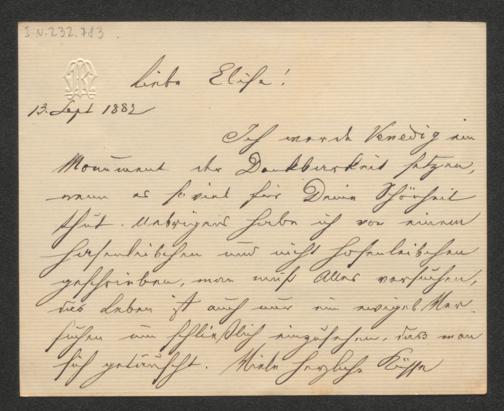 I.N.232.783.
Liebe Elise!
13. Sept 1882
Ich werde Venedig ein
Monument der Dankbarkeit setzen,
wenn es so viel für Deine Schönheit
thut. Uebrigens habe ich von einem
und nicht
geschrieben, man muß Alles versuchen,
das Leben ist auch nur ein ewiges Ver-
suchen um schließlich einzusehen, daß man
sich getäuscht. Viele herzliche Küsse